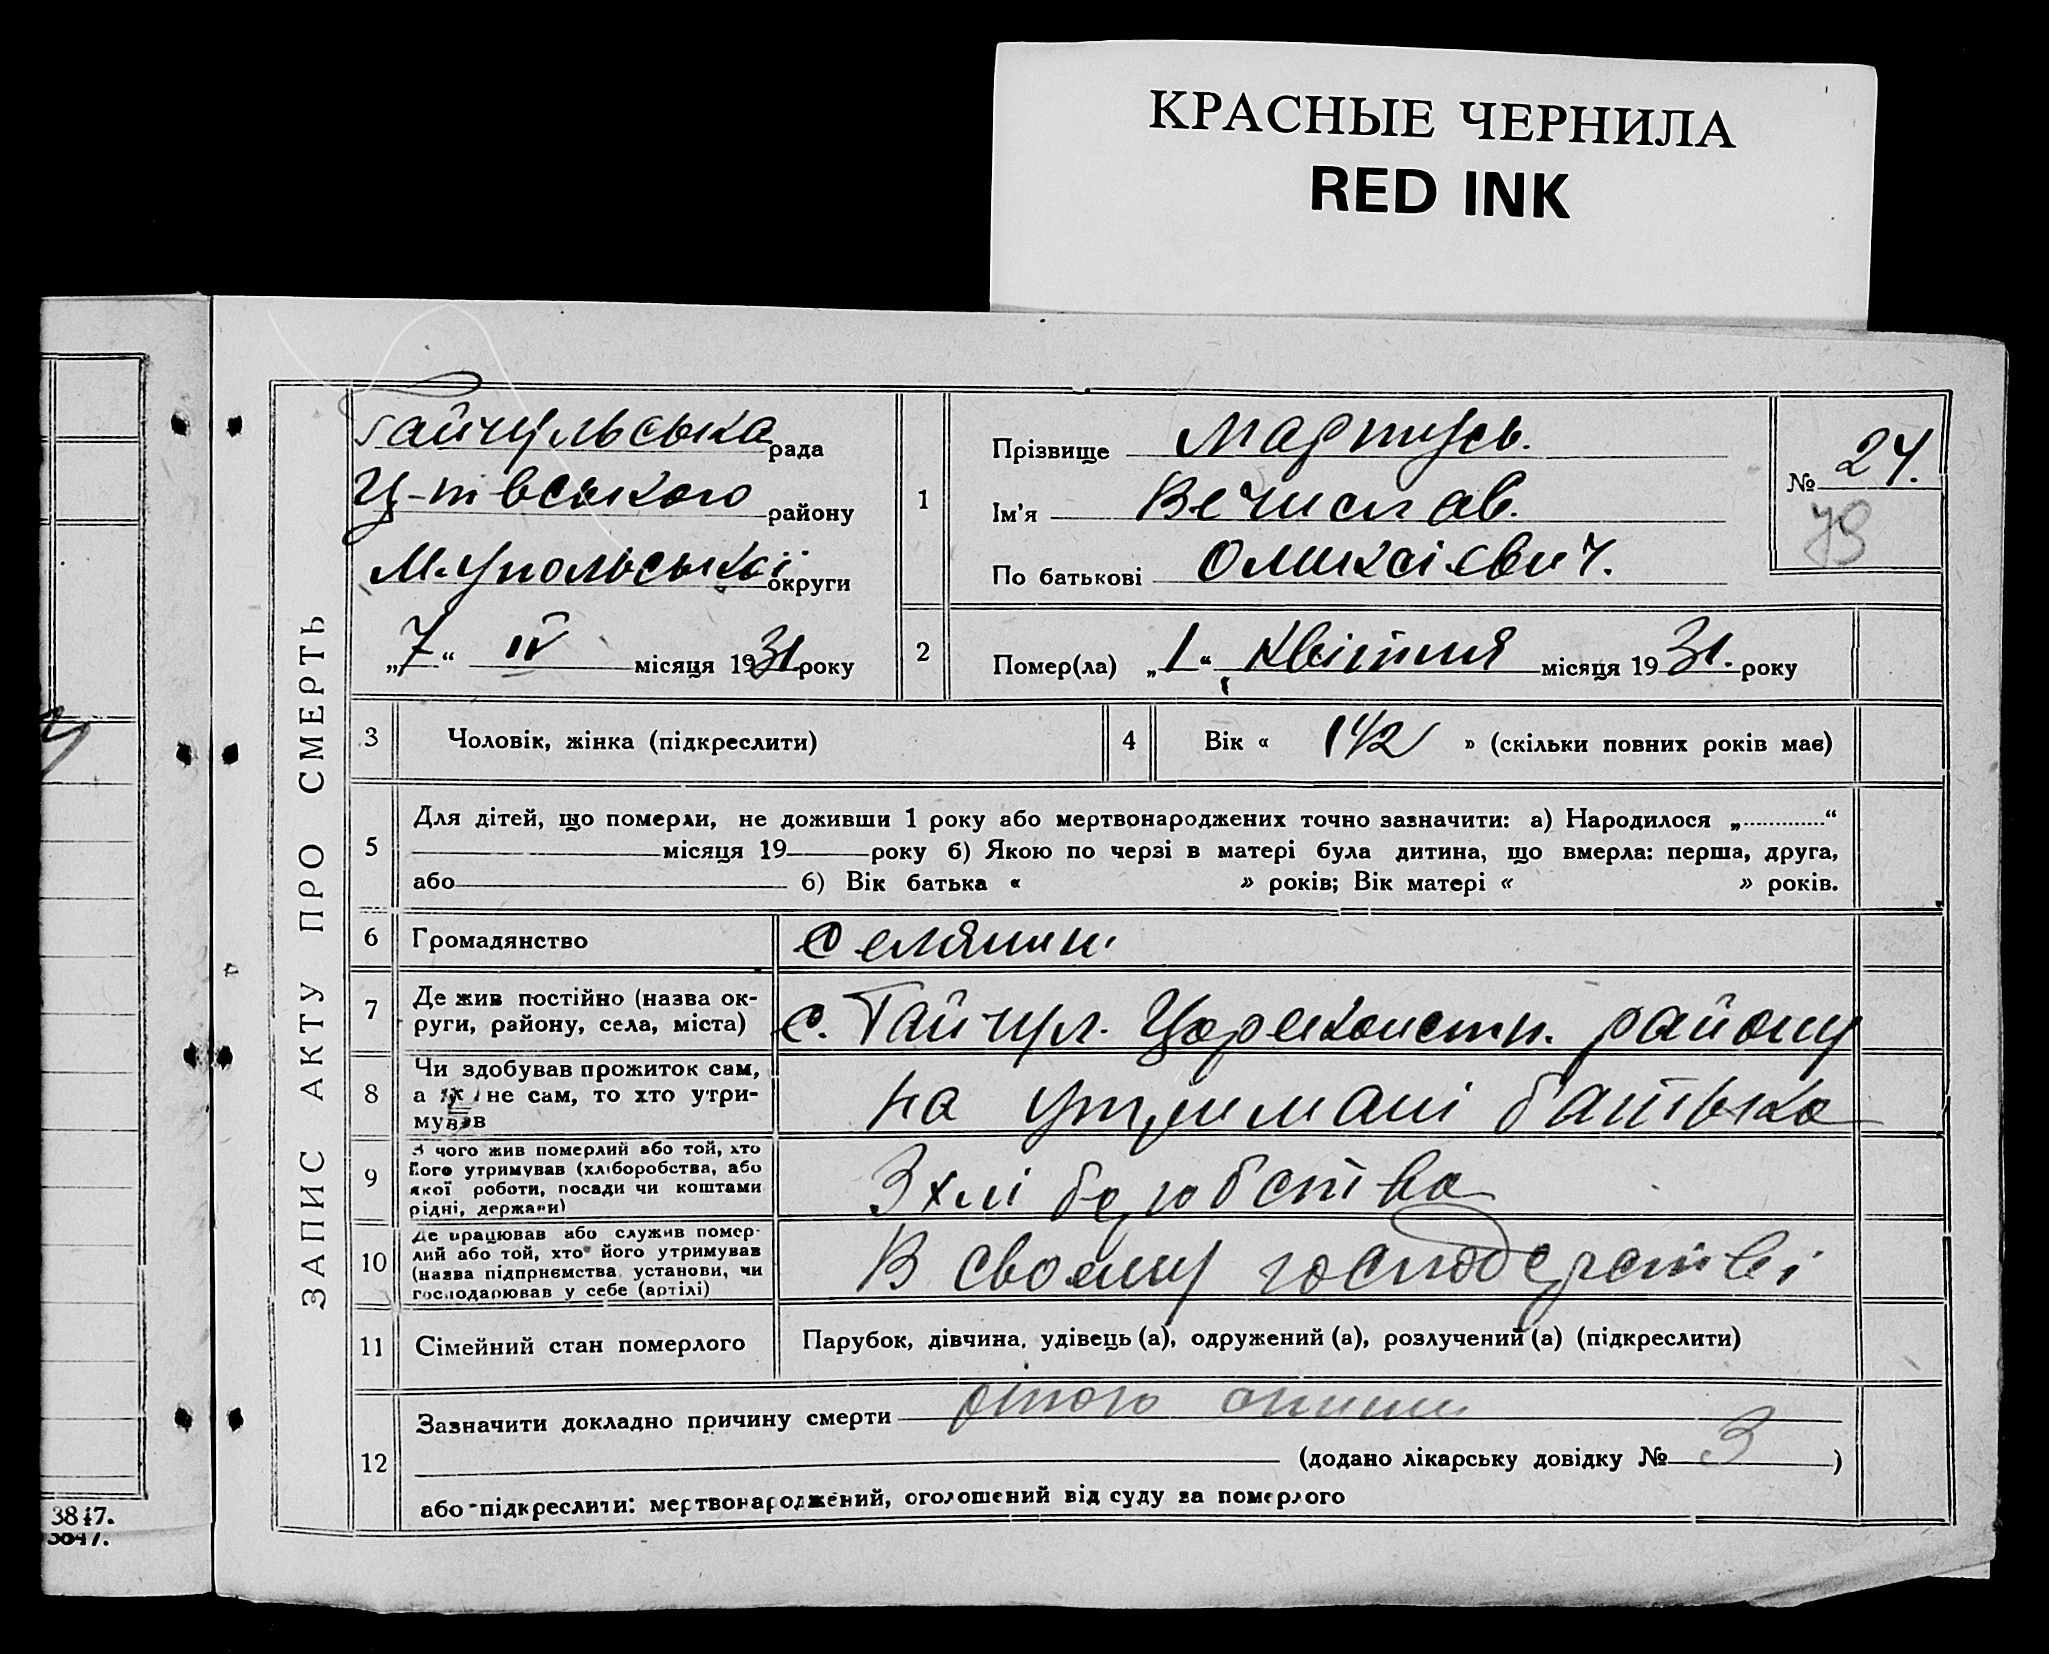 КРАСНЫЕ ЧЕРНИЛА
RED INK
ЗАПИС АКТУ ПРО СМЕРТЬ
Гайчульська рада
Ц-тівського району
М-упольської округи
„7“ IV місяця 1931 року
1
Прізвище Мартусь.
Ім'я Вечислав.
По батькові Оликсієвич.
№ 24.
79
2
Помер(ла) „1“ квітня місяця 1931. року
3 Чоловік, жінка (підкреслити)
4 Вік « 1 1/2 » (скільки повних років має)
5
Для дітей, що померли, не доживши 1 року або мертвонароджених точно зазначити: а) Народилося „............“
місяця 19 року б) Якою по черзі в матері була дитина, що вмерла: перша, друга,
або б) Вік батька « » років; Вік матері « » років.
6 Громадянство Селянин.
7 Де жив постійно (назва ок-
руги, району, села, міста)
с. Гайчул. Цареконстн. району
8 Чи здобував прожиток сам,
а як не сам, то хто утри-
мував
на утримані батька
9 З чого жив померлий або той, хто
його утримував (хліборобства, або
якої роботи, посади чи коштами
рідні, держави)
З хліборобства
10 Де працював або служив помер-
лий або той, хто його утримував
(назва підприємства, установи, чи
господарював у себе (артілі)
В своєму господарстві
11 Сімейний стан померлого
Парубок, дівчина, удівець (а), одружений (а), розлучений (а) (підкреслити)
12
Зазначити докладно причину смерти
(додано лікарську довідку № 3 )
або підкреслити: мертвонароджений, оголошений від суду за померлого
3847.
3847.